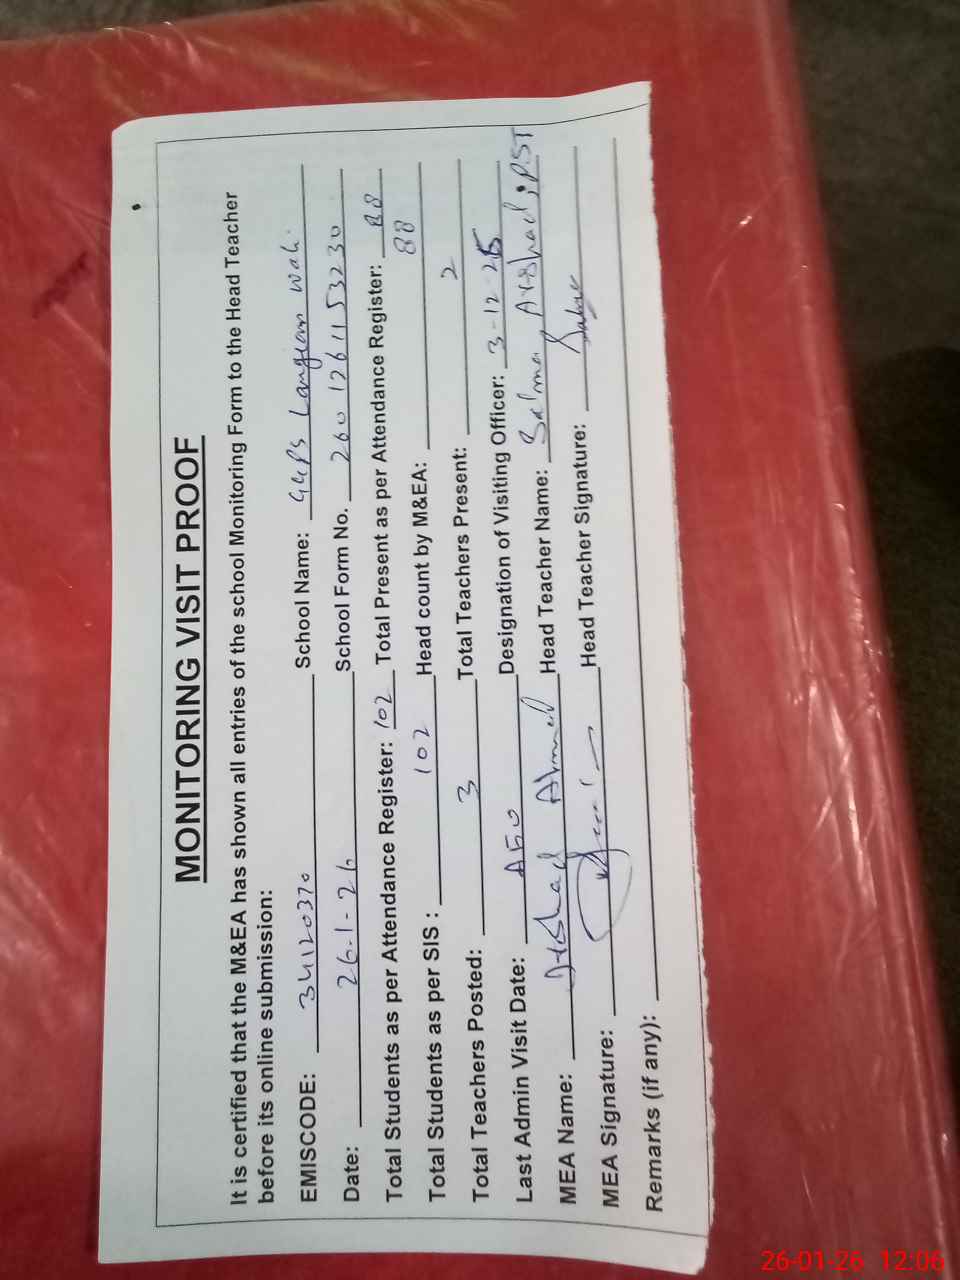 MONITORING VISIT PROOF
It is certified that the M&EA has shown all entries of the school Monitoring Form to the Head Teacher
before its online submission:
EMISCODE: 34120370 School Name: GGPS Langean Wali
Date: 26-1-26 School Form No. 260126115323 0
Total Students as per Attendance Register: 102 Total Present as per Attendance Register: 88
Total Students as per SIS : 102 Head count by M&EA: 88
Total Teachers Posted: 3 Total Teachers Present: 2
Last Admin Visit Date: AEO Designation of Visiting Officer: 3-12-25
MEA Name: Ahmed Head Teacher Name: Salma Arshad, PST
MEA Signature: Head Teacher Signature: Salma
Remarks (if any):
26-01-26 12:06